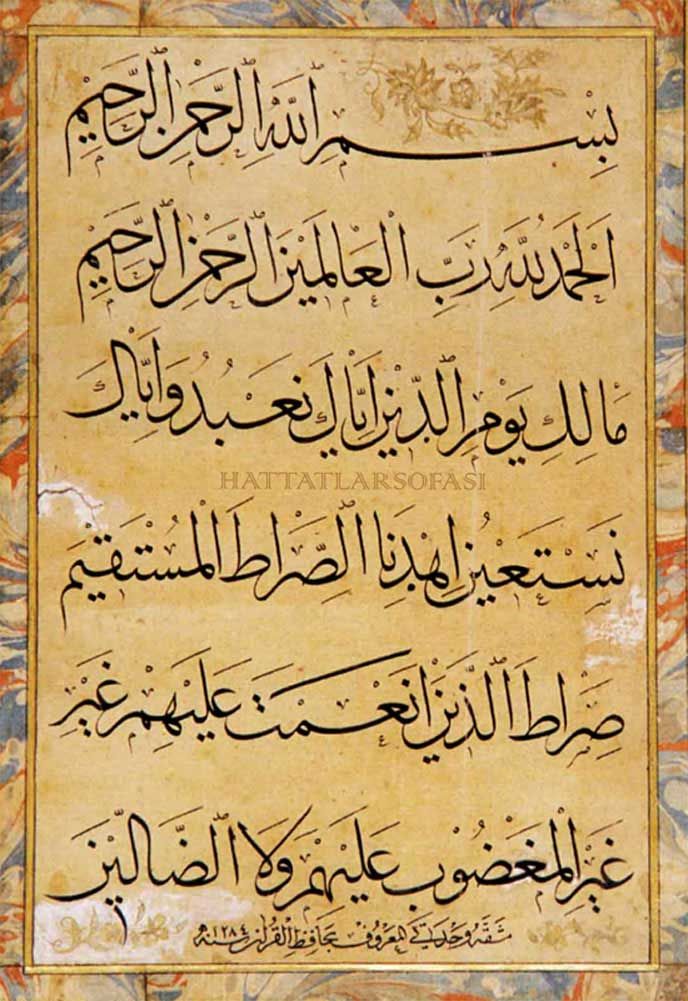 بِسْمِ اللهِ الرَّحْمٰنِ الرَّحِيمِ
اَلْحَمْدُ لِلّٰهِ رَبِّ الْعَالَمِينَ الرَّحْمٰنِ الرَّحِيمِ
مَالِكِ يَوْمِ الدِّينِ اِيَّاكَ نَعْبُدُ وَاِيَّاكَ
HATTATLARSOFASI
نَسْتَعِينُ اِهْدِنَا الصِّرَاطَ الْمُسْتَقِيمَ
صِرَاطَ الَّذِينَ اَنْعَمْتَ عَلَيْهِمْ غَيْرِ
غَيْرِ الْمَغْضُوبِ عَلَيْهِمْ وَلَا الضَّالِّينَ
مشقه المعروف بحافظ القرآن سنه ١٢٨٤
١